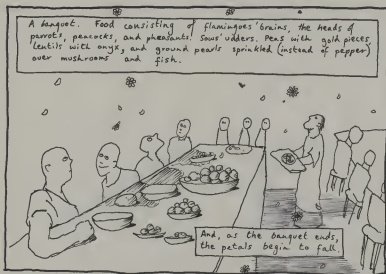 A banquet. Food consisting of flamingoes' brains, the heads of
parrots, peacocks, and pheasants. Sows' udders. Peas with gold pieces,
lentils with onyx, and ground pearls sprinkled (instead of pepper)
over mushrooms and fish.
And, as the banquet ends,
the petals begin to fall.